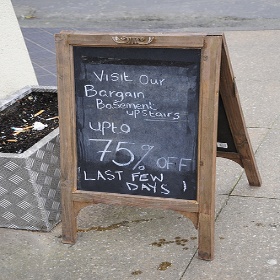 Visit Our
Bargain
Basement
upstairs
upto
75% OFF
LAST FEW
DAYS !